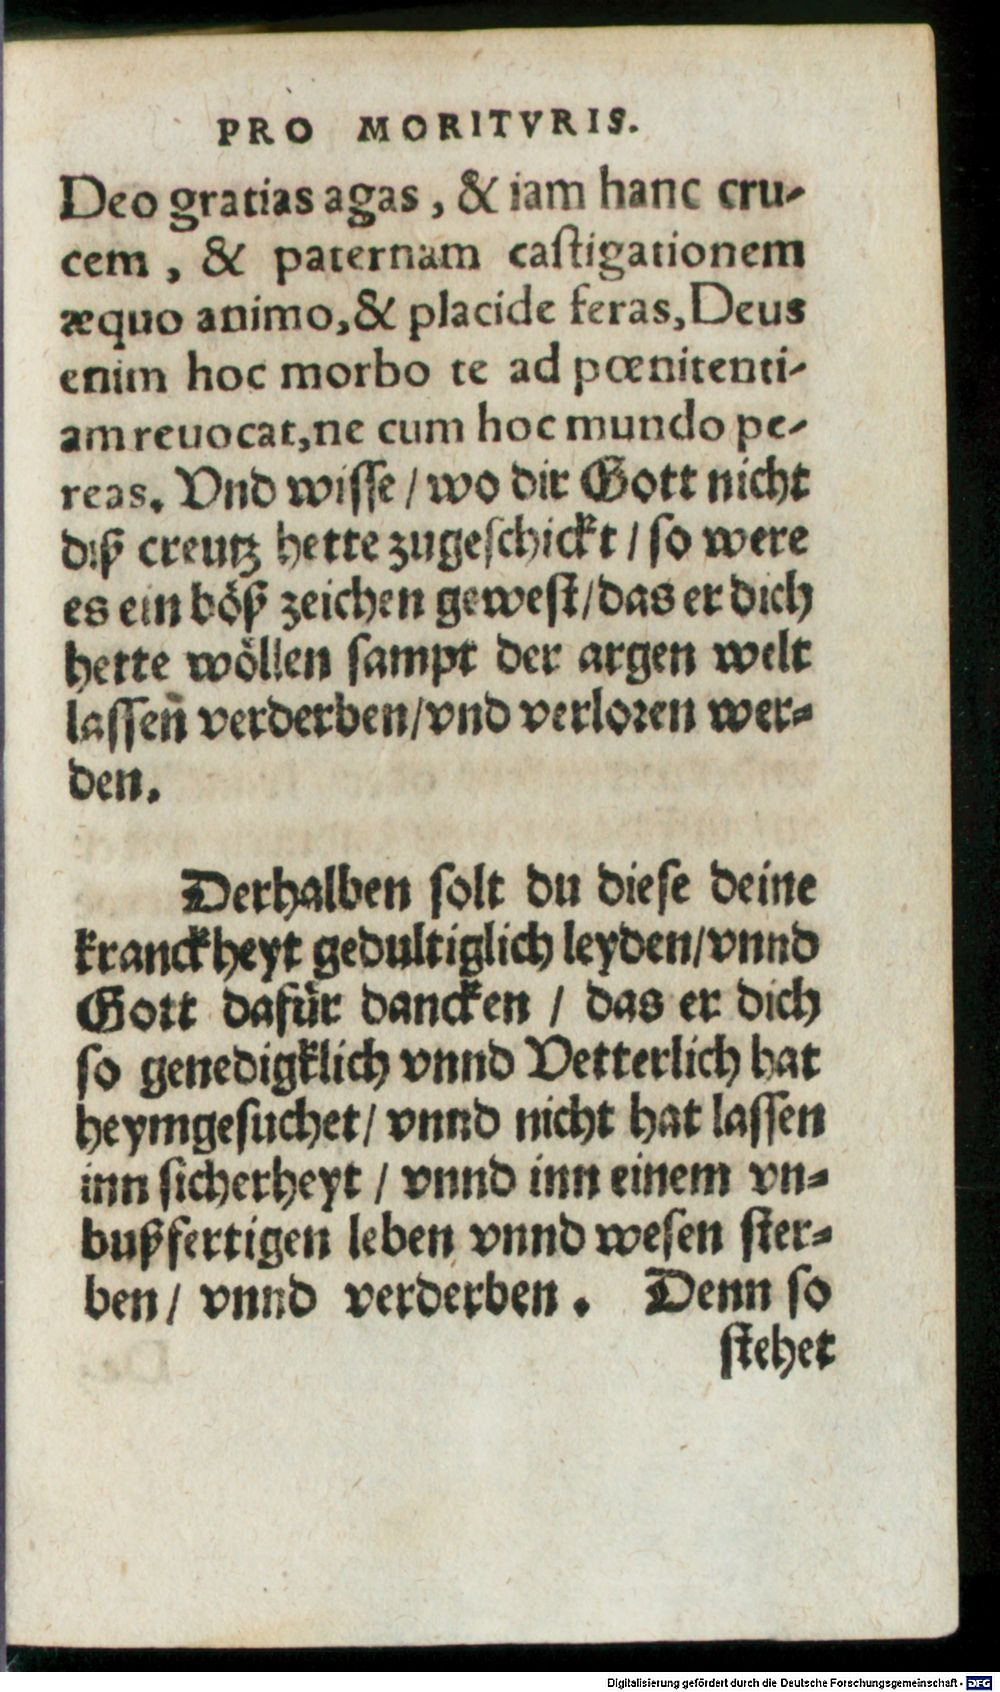 PRO MORITVRIS.
Deo gratias agas, & iam hanc cru-
cem, & paternam castigationem
æquo animo, & placide feras, Deus
enim hoc morbo te ad pœnitenti-
am reuocat, ne cum hoc mundo pe-
reas. Vnd wisse / wo dir Gott nicht
diß creutz hette zugeschickt / so were
es ein böß zeichen gewest / das er dich
hette wöllen sampt der argen welt
lassen verderben / vnd verloren wer-
den.
Derhalben solt du diese deine
kranckheyt gedultiglich leyden / vnnd
Gott dafür dancken / das er dich
so genedigklich vnnd Vetterlich hat
heymgesuchet / vnnd nicht hat lassen
inn sicherheyt / vnnd inn einem vn-
bußfertigen leben vnnd wesen ster-
ben / vnnd verderben. Denn so
stehet
Digitalisierung gefördert durch die Deutsche Forschungsgemeinschaft - DFG